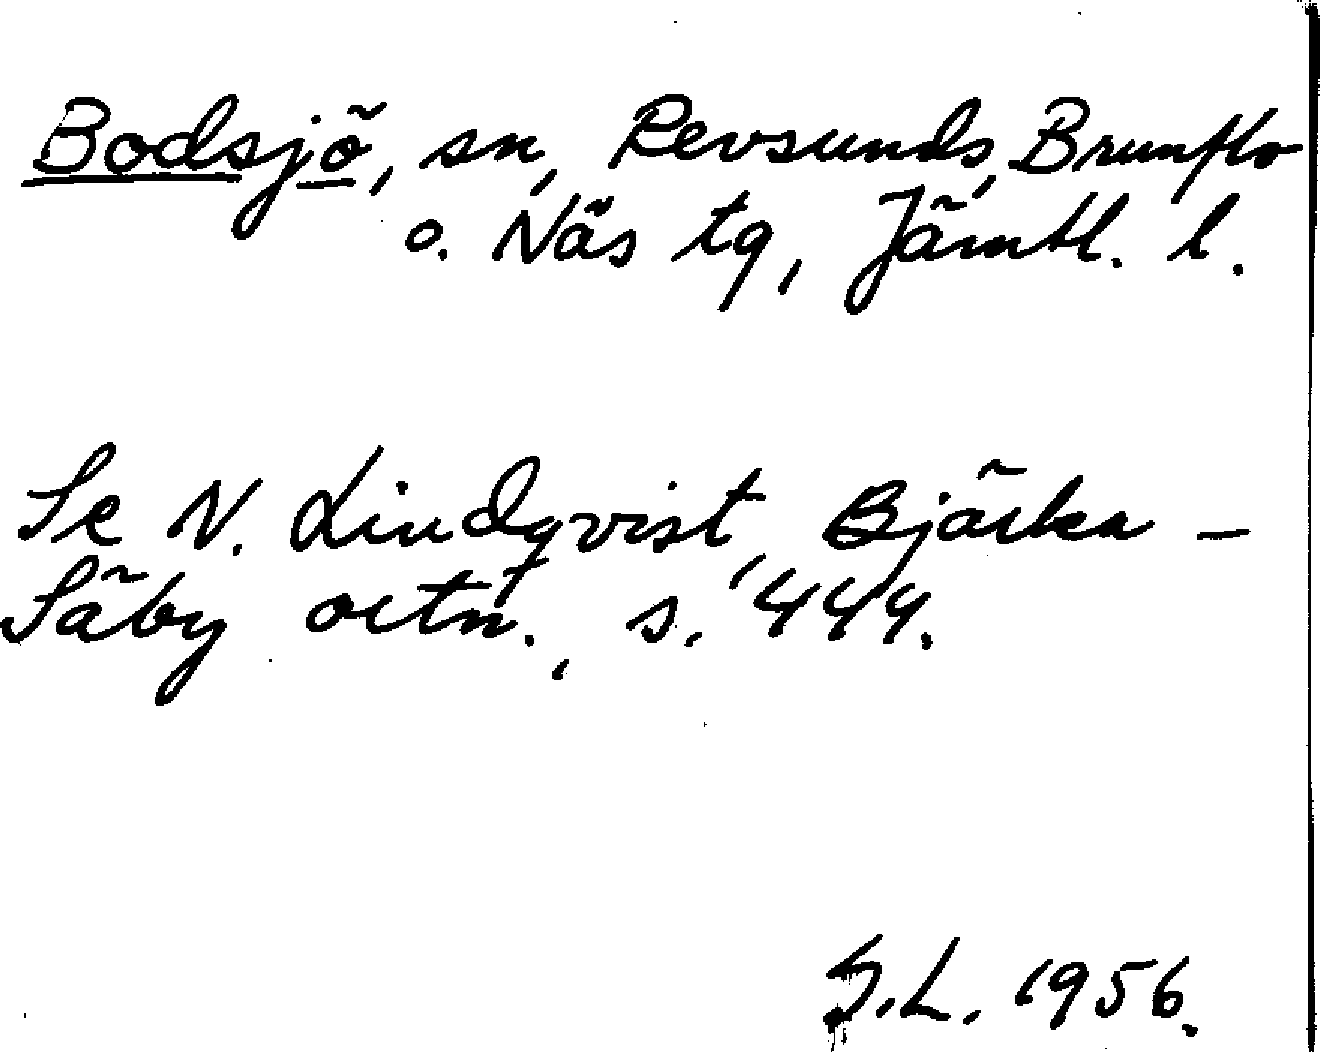 Bodsjö, sn, Revsunds, Brunflo
o. Näs tg, Jämtl. l.
Se N. Lindqvist, Bjärka –
Säby ortn., s. 444.
S.L. 1956.